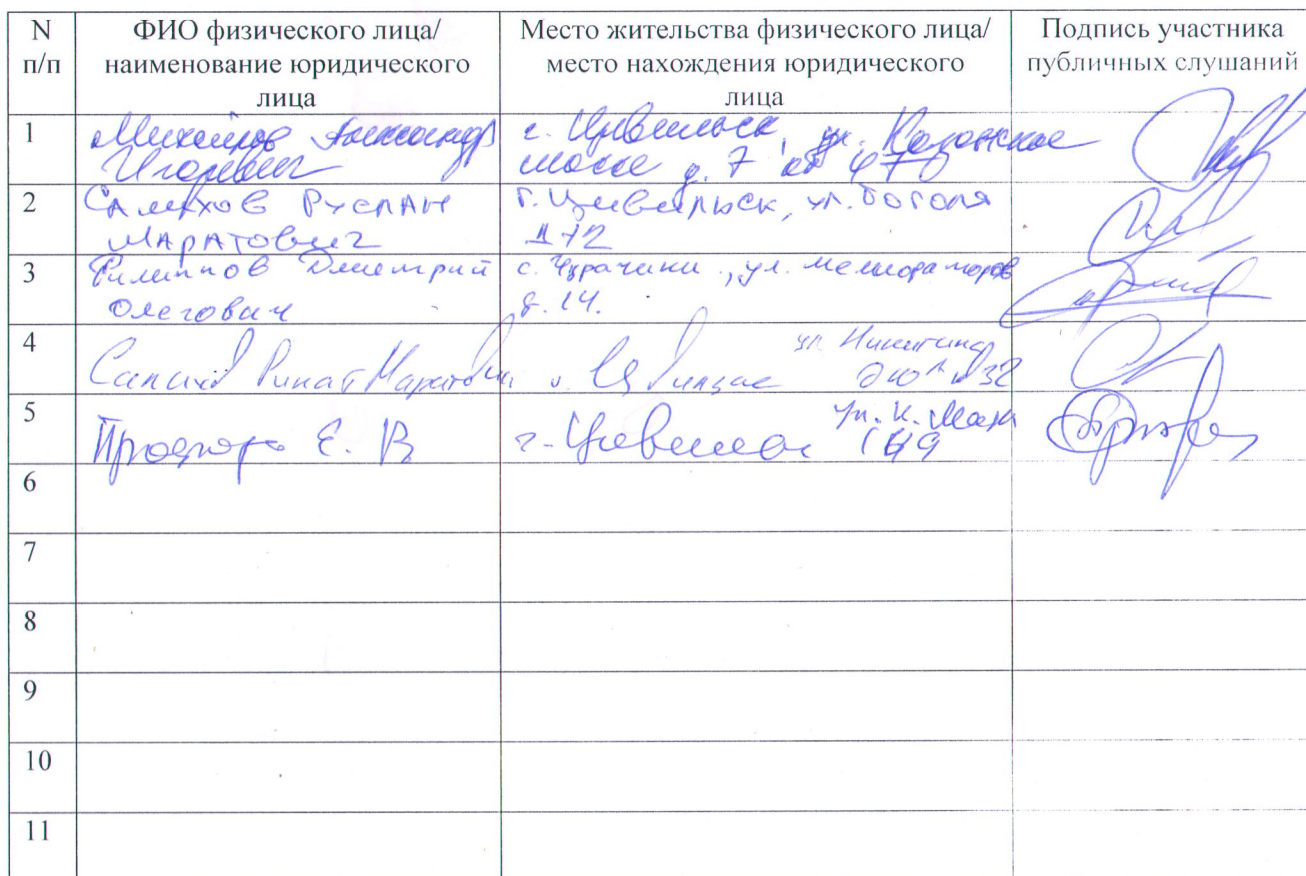 N п/п
ФИО физического лица/ наименование юридического лица
Место жительства физического лица/ место нахождения юридического лица
Подпись участника публичных слушаний
1
Михайлов Александр
Игоревич
г. Цивильск, ул. Казанское
шоссе д. 7 кв 47
2
Салихов Руслан
Маратович
г. Цивильск, ул. Гоголя
д 72
3
Филиппов Дмитрий
Олегович
с. Чурачики, ул. мелиораторов
д. 14.
4
Ринат Маратович
ул. Никитина
32
5
Е. В
г. Цивильск
ул. К. Маркс
6
7
8
9
10
11